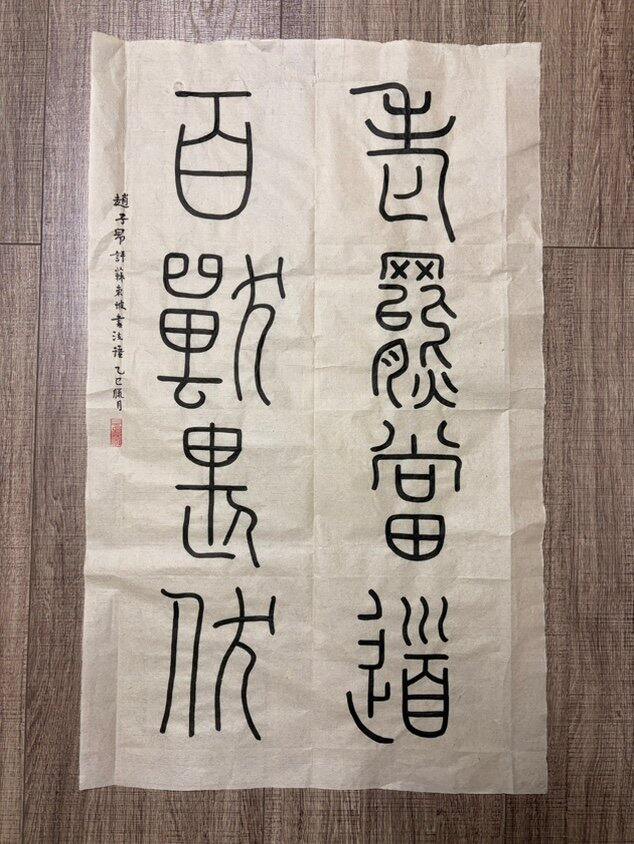 老羆當道
百獸畏伏
趙子昂評蘇東坡書法語 乙巳臘月